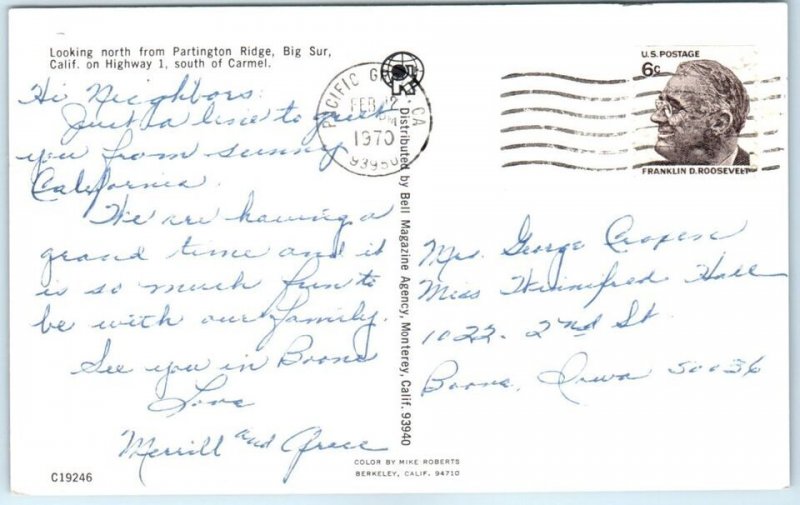 Looking north from Partington Ridge, Big Sur,
Calif. on Highway 1, south of Carmel.
Hi Neighbors:
Just a line to greet
you from sunny
California.
We are having a
grand time and it
is so much fun to
be with our family.
See you in Boone
Love
Merrill and Grace
C19246
PACIFIC GROVE, CA
FEB 12
PM
1970
93950
Distributed by Bell Magazine Agency, Monterey, Calif. 93940
U.S. POSTAGE
6c
FRANKLIN D. ROOSEVELT
Mrs. George
Miss Winnifred Hall
1022- 2nd St
Boone, Iowa 50036
COLOR BY MIKE ROBERTS
BERKELEY, CALIF. 94710